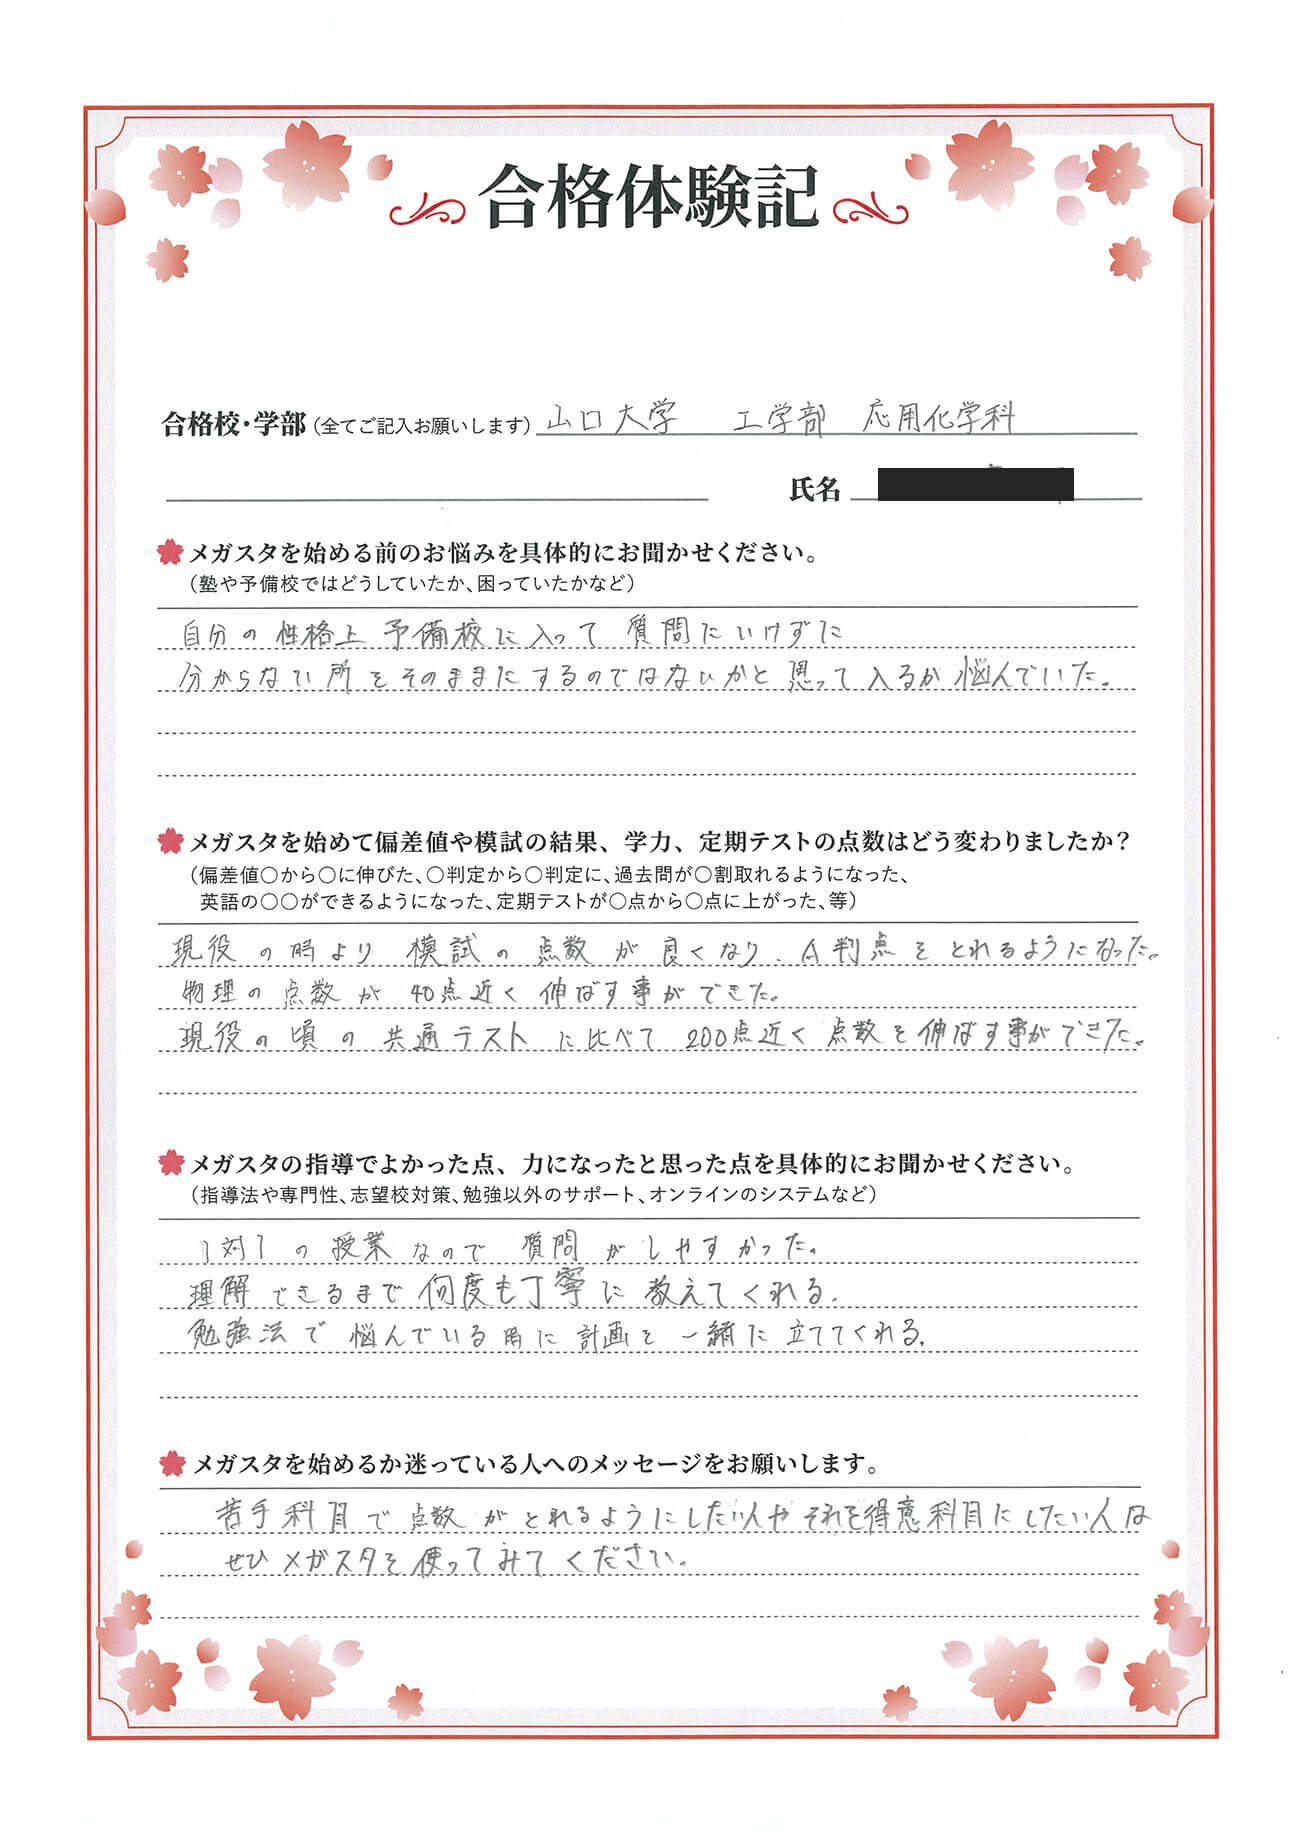 合格体験記
合格校・学部(全てご記入お願いします) 山口大学 工学部 応用化学科
氏名
メガスタを始める前のお悩みを具体的にお聞かせください。
(塾や予備校ではどうしていたか、困っていたかなど)
自分の性格上 予備校に入って 質問にいけずに
分からない所をそのままにするのではないかと思って入るか悩んでいた。
メガスタを始めて偏差値や模試の結果、学力、定期テストの点数はどう変わりましたか？
(偏差値○から○に伸びた、○判定から○判定に、過去問が○割取れるようになった、
英語の○○ができるようになった、定期テストが○点から○点に上がった、等)
現役の時より 模試の点数が良くなり、A判点をとれるようになった。
物理の点数が 40点近く伸ばす事ができた。
現役の頃の共通テストに比べて 200点近く点数を伸ばす事ができた。
メガスタの指導でよかった点、力になったと思った点を具体的にお聞かせください。
(指導法や専門性、志望校対策、勉強以外のサポート、オンラインのシステムなど)
1対1の授業なので 質問がしやすかった。
理解できるまで何度も丁寧に教えてくれる。
勉強法で悩んでいる時に計画を一緒に立ててくれる。
メガスタを始めるか迷っている人へのメッセージをお願いします。
苦手科目で点数がとれるようにしたい人やそれを得意科目にしたい人は
ぜひメガスタを使ってみてください。